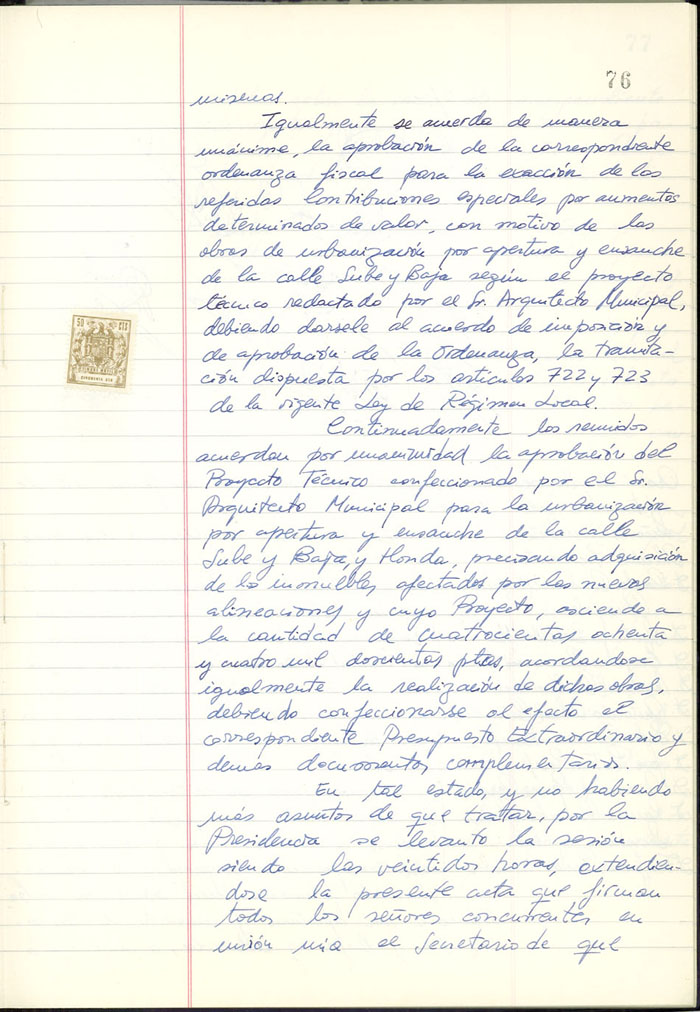 77
76
mismas.
Igualmente se acuerda de manera
unánime, la aprobación de la correspondiente
ordenanza fiscal para la exacción de las
referidas Contribuciones especiales por aumentos
determinados de valor, con motivo de las
obras de urbanización por apertura y ensanche
de la calle Sube y Baja según el proyecto
técnico redactado por el Sr. Arquitecto Municipal,
debiendo darsele al acuerdo de imposición y
de aprobación de la Ordenanza, la tramita-
ción dispuesta por los artículos 722 y 723
de la vigente Ley de Régimen Local.
Continuadamente los reunidos
acuerdan por unanimidad la aprobación del
Proyecto Técnico confeccionado por el Sr.
Arquitecto Municipal para la urbanización
por apertura y ensanche de la calle
Sube y Baja, y Honda, precisando adquisición
de los inmuebles afectados por las nuevas
alineaciones y cuyo Proyecto, asciende a
la cantidad de cuatrocientas ochenta
y cuatro mil doscientas ptas, acordandose
igualmente la realización de dichas obras,
debiendo confeccionarse al efecto el
correspondiente Presupuesto Extraordinario y
demás documentos complementarios.
En tal estado, y no habiendo
más asuntos de que trattar, por la
Presidencia se levanto la sesión
siendo las veintidos horas, extendien-
dose la presente acta que firman
todos los señores concurrentes en
unión mía el Secretario de que
50 CTS